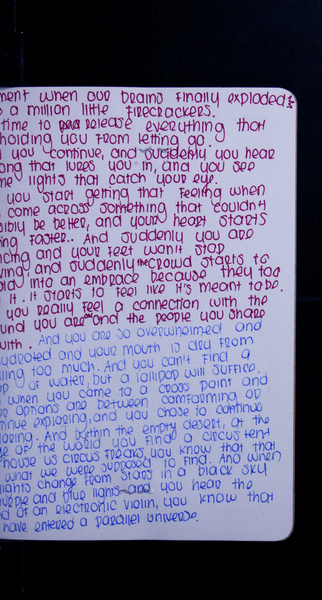 ment when our brains finally exploded
a million little firecrackers.
time to release everything that
holding you from letting go.
you continue, and suddenly you hear
ong that lures you in, and you see
me lights that catch your eye.
you start getting that feeling when
come across something that couldn't
sibly be better, and your heart starts
ing faster.. And suddenly you are
ncing and your feet won't stop
ving and suddenly the crowd starts to
into an embrace because they too
it. It starts to feel like it's meant to be.
you really feel a connection with the
und you are on and the people you share
with. And you are so overwhelmed and
hydrated and your mouth is dry from
iling too much. And you can't find a
op of water, but a lollipop will suffice.
when you came to a cross point and
e options are between comforming or
tinue exploring, and you chose to continue
loring. And within the empty desert, at the
ge of the world you find a circus tent
house us circus freaks, you know that that
what we were supposed to find. And when
lights change from stars in a black sky
purple and blue lights and you hear the
nd of an electronic violin, you know that
have entered a parallel universe.